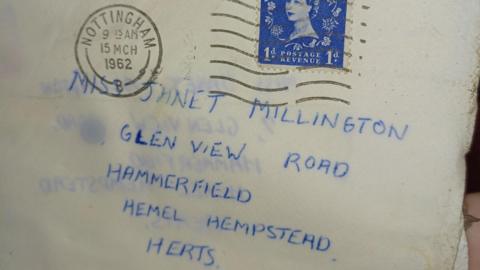 NOTTINGHAM
9 15 AM
15 MCH
1962
1d. 1d.
POSTAGE
REVENUE
MISS JANET MILLINGTON
GLEN VIEW ROAD
HAMMERFIELD
HEMEL HEMPSTEAD.
HERTS.